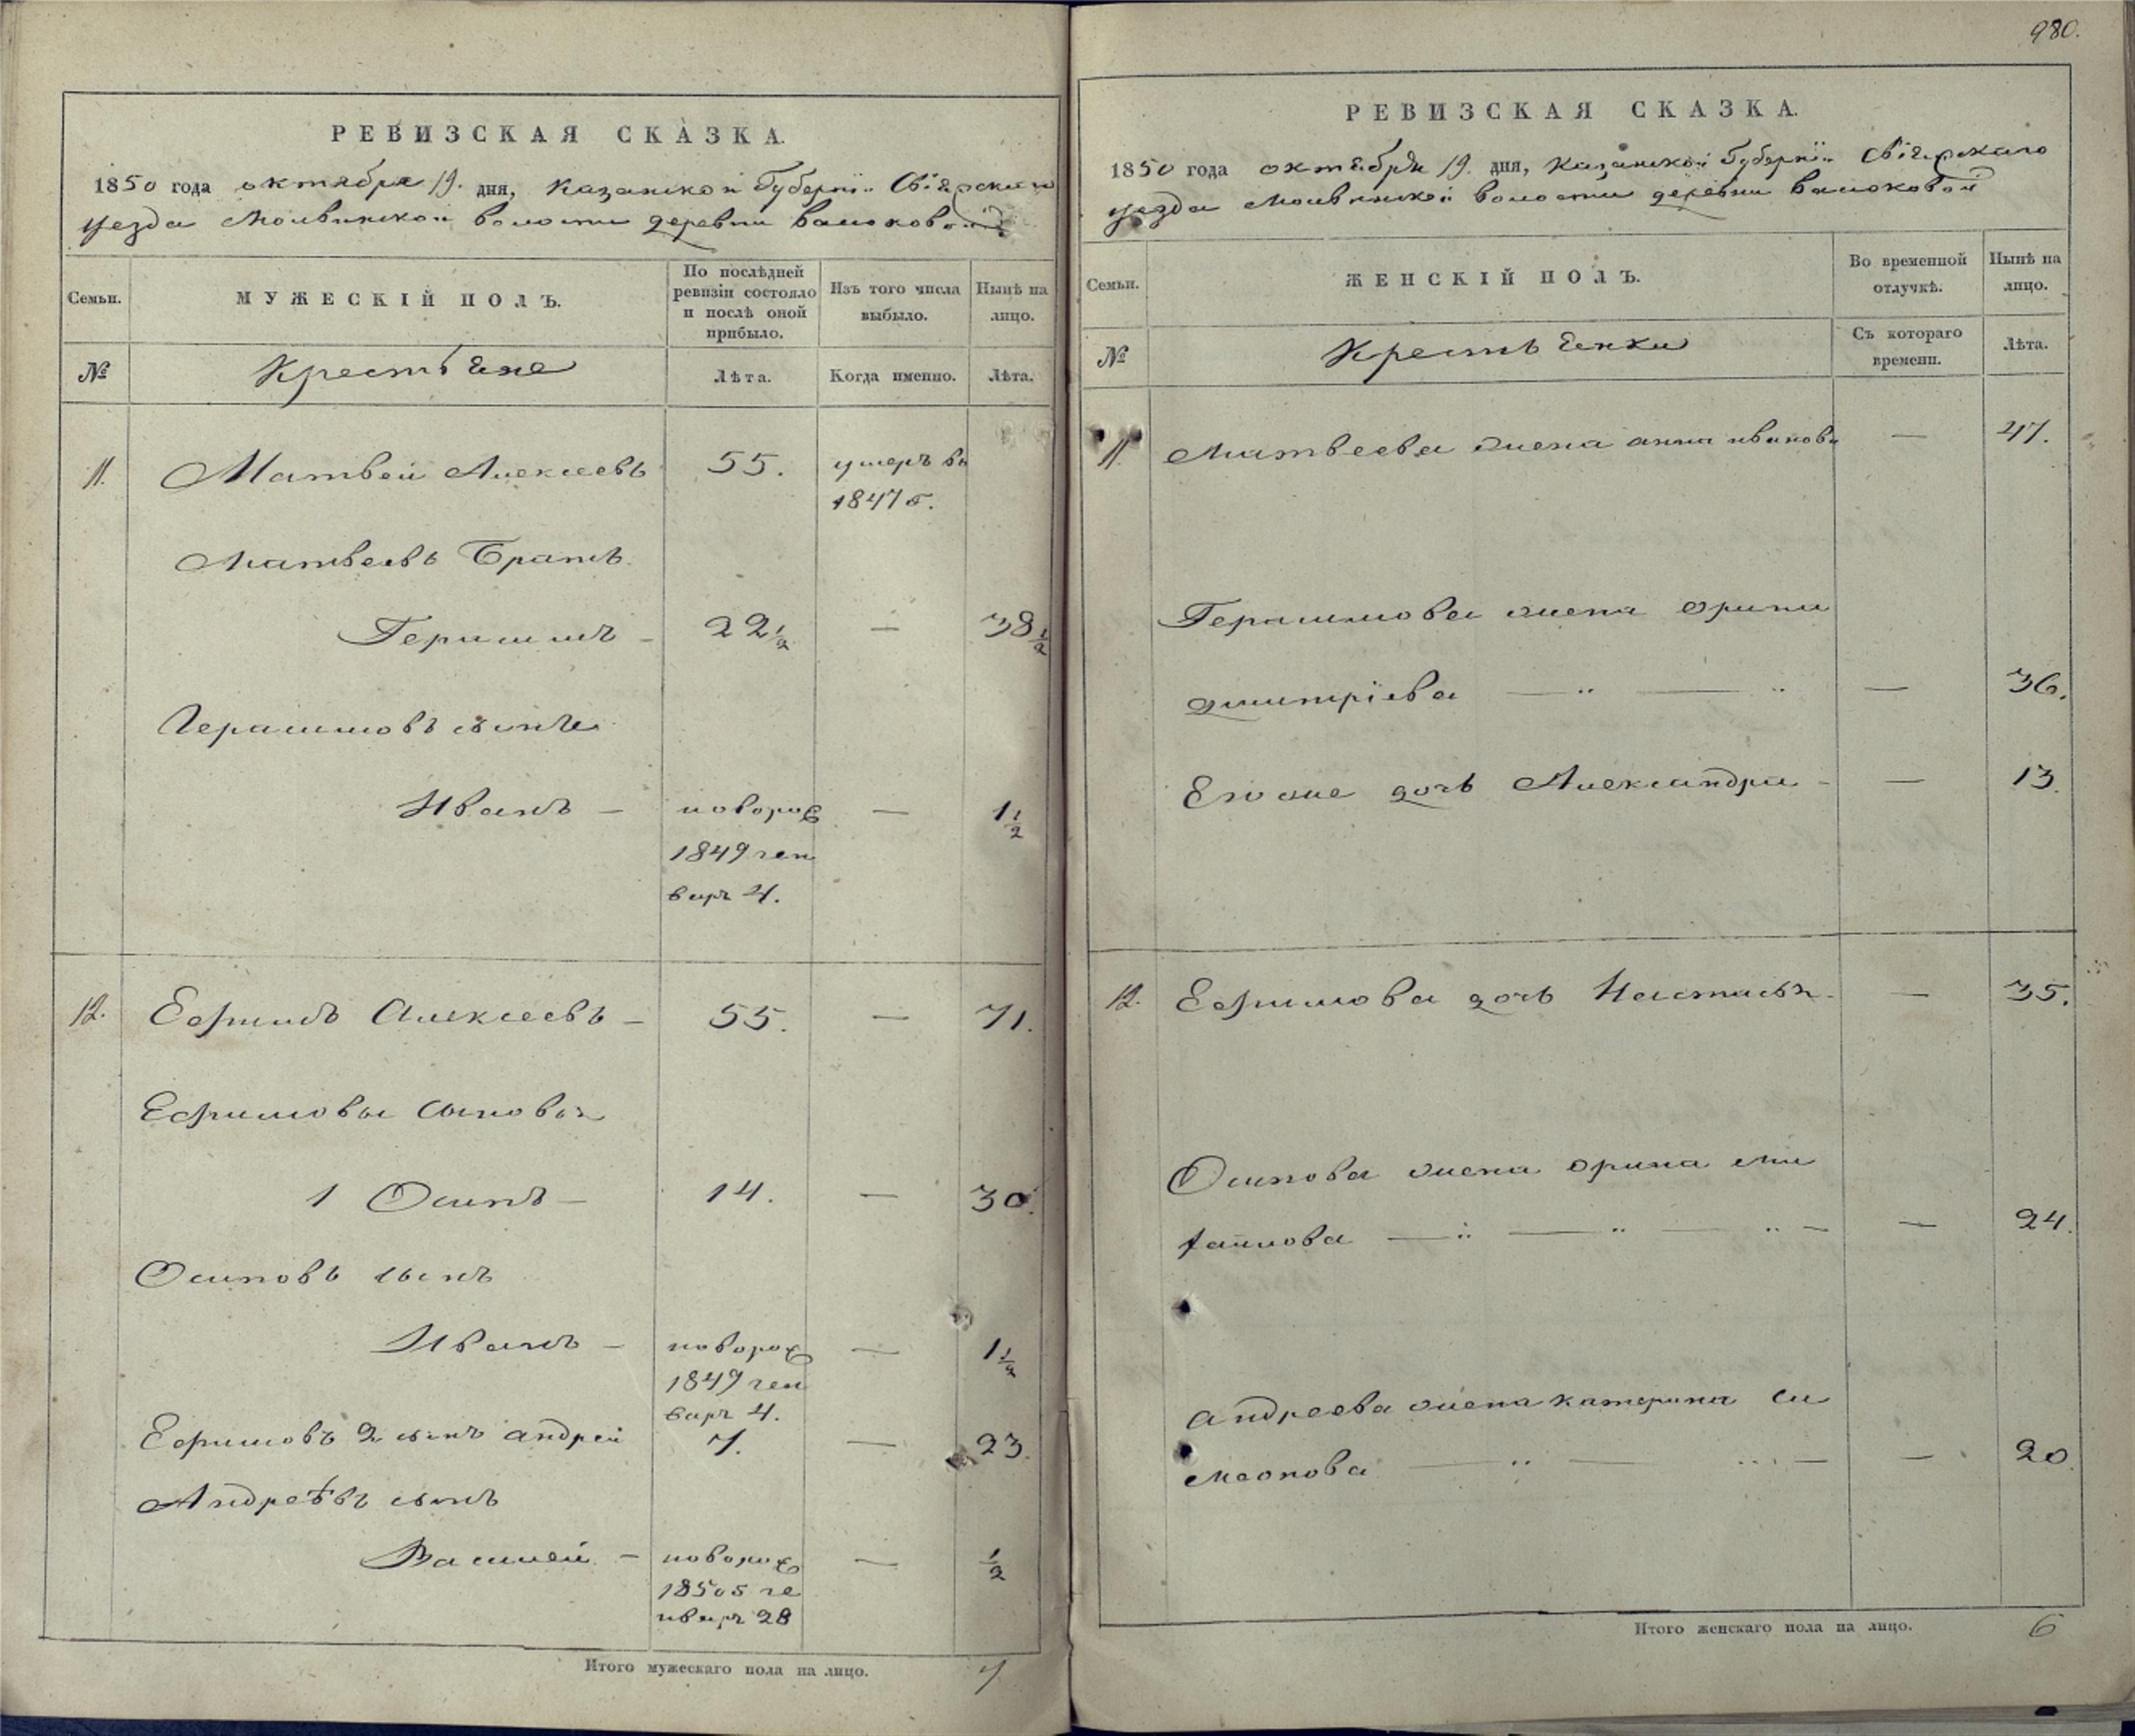 980.
РЕВИЗСКАЯ СКАЗКА.
1850 года октября 19. дня, Казанской Губернїи Свіяжскаго
уезда Молвинской волости деревни Валоковой
Семьи.
МУЖЕСКІЙ ПОЛЪ.
По послѣдней
ревизіи состояло
и послѣ оной
прибыло.
Изъ того числа
выбыло.
Нынѣ на
лицо.
№
Крестьяне
Лѣта.
Когда именно.
Лѣта.
11. Матвей Алексеевъ 55. умеръ въ
1847 г.
Матвеевъ Братъ
Герасимъ – 22 1/2 — 38 1/2
Герасимовъ сынъ
Иванъ – новорож — 1 1/2
1849 ген
варя 4.
12. Ефимъ Алексеевъ – 55. — 71.
Ефимовы сыновья
1 Осипъ – 14. — 30.
Осиповъ сынъ
Иванъ – новорож — 1 1/2
1849 ген
варя 4.
Ефимовъ 2 сынъ андрей 7. — 23.
Андреѣвъ сынъ
Василей – новорож — 1/2
1850 г ге
нваря 28
Итого мужескаго пола на лицо. 7
РЕВИЗСКАЯ СКАЗКА.
1850 года октября 19. дня, Казанской Губернїи Свіяжскаго
уезда Молвинской волости деревни Валоковой
Семьи.
ЖЕНСКІЙ ПОЛЪ.
Во временной
отлучкѣ.
Нынѣ на
лицо.
№
Крестьянки
Съ котораго
времени.
Лѣта.
11. Матвеева жена анна иванова — 47.
Герасимова жена орина
дмитрїева — 36.
Его же дочь Александра – — 13.
12. Ефимова дочь Настасья – — 35.
Осипова жена орина ми
хайлова — 24.
Андреева жена катерина си
меонова — 20.
Итого женскаго пола на лицо. 6